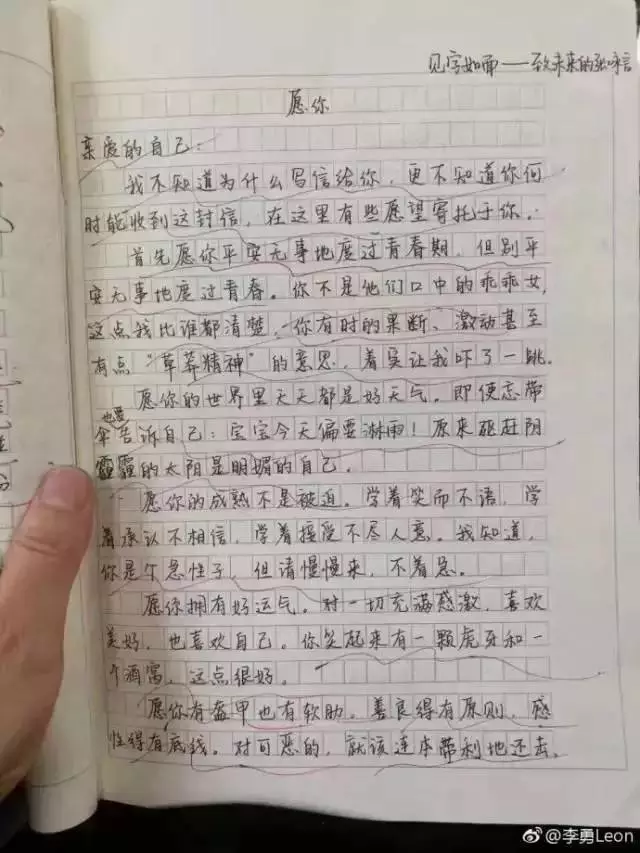 见字如面——致未来的张咏言
愿你
亲爱的自己:
我不知道为什么写信给你，更不知道你何
时能收到这封信，在这里有些愿望寄托于你。
首先愿你平安无事地度过青春期，但别平
安无事地度过青春。你不是他们口中的乖乖女，
这点我比谁都清楚，你有时的果断、激动甚至
有点“草莽精神”的意思，着实让我吓了一跳。
愿你的世界里天天都是好天气。即使忘带
伞也要告诉自己：宝宝今天偏要淋雨！原来驱赶阴
霾的太阳是明媚的自己。
愿你的成熟不是被迫。学着笑而不语，学
着承认不相信，学着接受不尽人意。我知道，
你是个急性子，但请慢慢来，不着急。
愿你拥有好运气。对一切充满感激，喜欢
美好，也喜欢自己。你笑起来有一颗虎牙和一
个酒窝，这点很好。
愿你有盔甲也有软肋。善良得有原则，感
性得有底线。对可恶的，就该连本带利地还去。
@李勇Leon